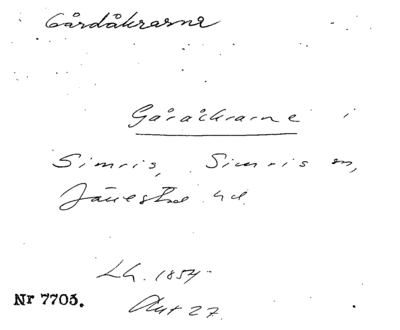 Gårdåkrarne
Gåråkrarne i
Simris, Simris sn,
Järrestad hd.
Lh. 1854
Akt 27
Nr 7703.